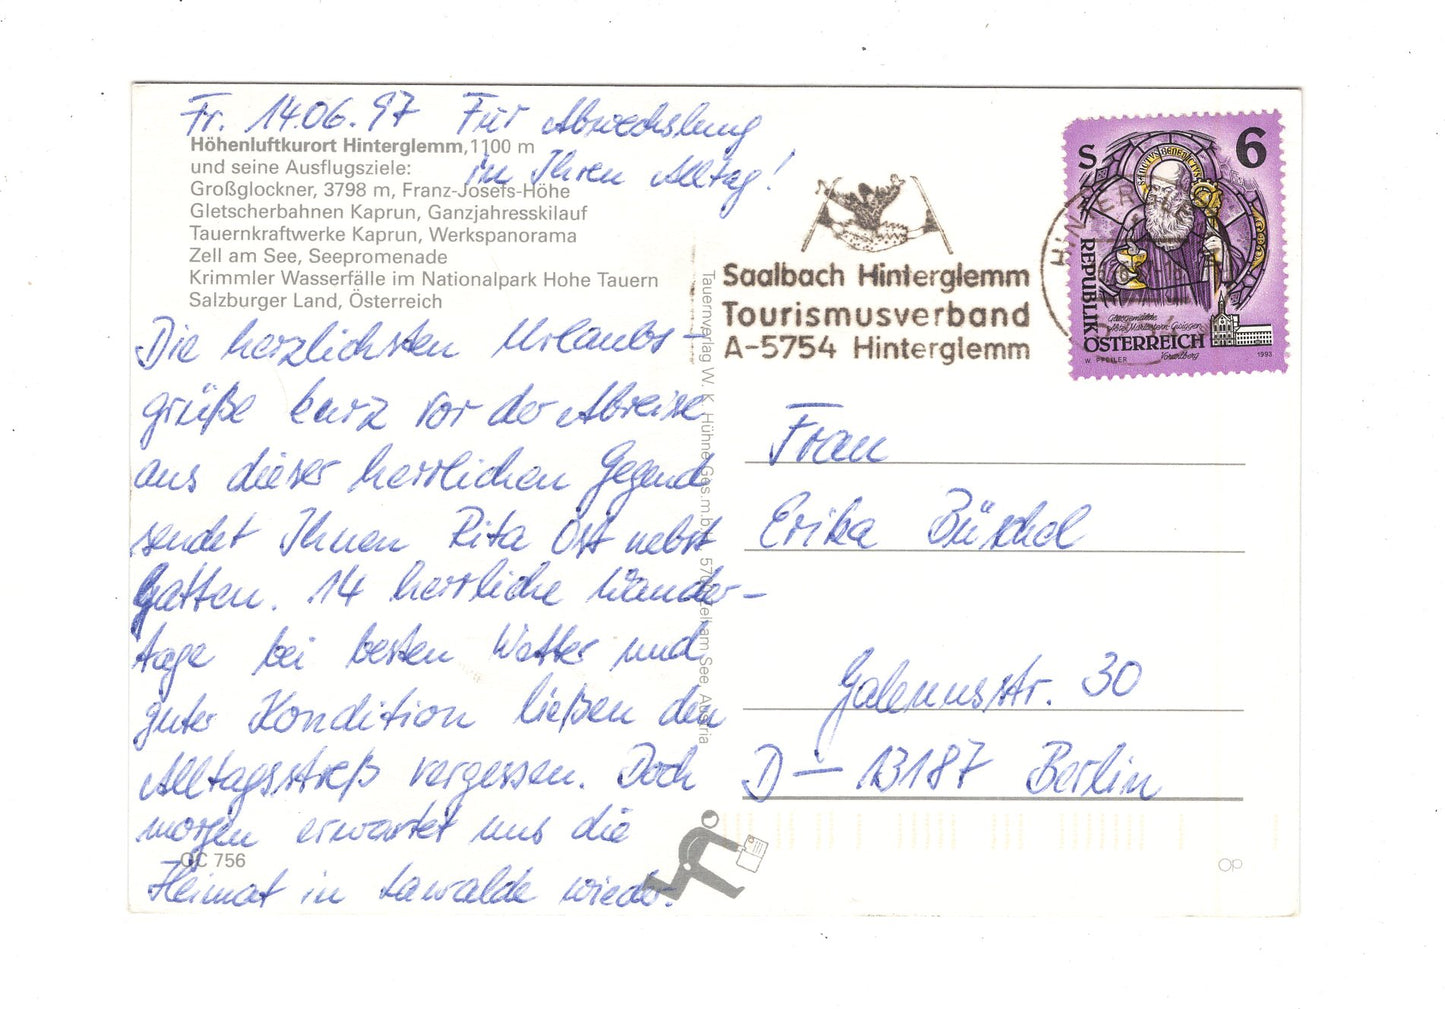 Fr. 14.06.97 Für Abwechslung
in Ihren Alltag!
Höhenluftkurort Hinterglemm, 1100 m
und seine Ausflugsziele:
Großglockner, 3798 m, Franz-Josefs-Höhe
Gletscherbahnen Kaprun, Ganzjahresskilauf
Tauernkraftwerke Kaprun, Werkspanorama
Zell am See, Seepromenade
Krimmler Wasserfälle im Nationalpark Hohe Tauern
Salzburger Land, Österreich
Die herzlichsten Urlaubs-
grüße kurz vor der Abreise
aus dieser herrlichen Gegend
sendet Ihnen Rita Ost nebst
Gatten. 14 herrliche Wander-
tage bei besten Wetter und
guter Kondition ließen den
Alltagsstreß vergessen. Doch
morgen erwartet uns die
Heimat in Lawalde wieder.
OC 756
Tauernverlag W. K. Hühne Ges.m.b. Zell am See, Austria
Saalbach Hinterglemm
Tourismusverband
A-5754 Hinterglemm
HINTERGLEMM
S 6
SANCTVS BENEDICTVS
REPUBLIK
ÖSTERREICH
Glasgemälde
Abtei Mariastern Gwiggen
Vorarlberg
W. PFEILER
1993
Frau
Erika Büschel
Galenusstr. 30
D-13187 Berlin
OP